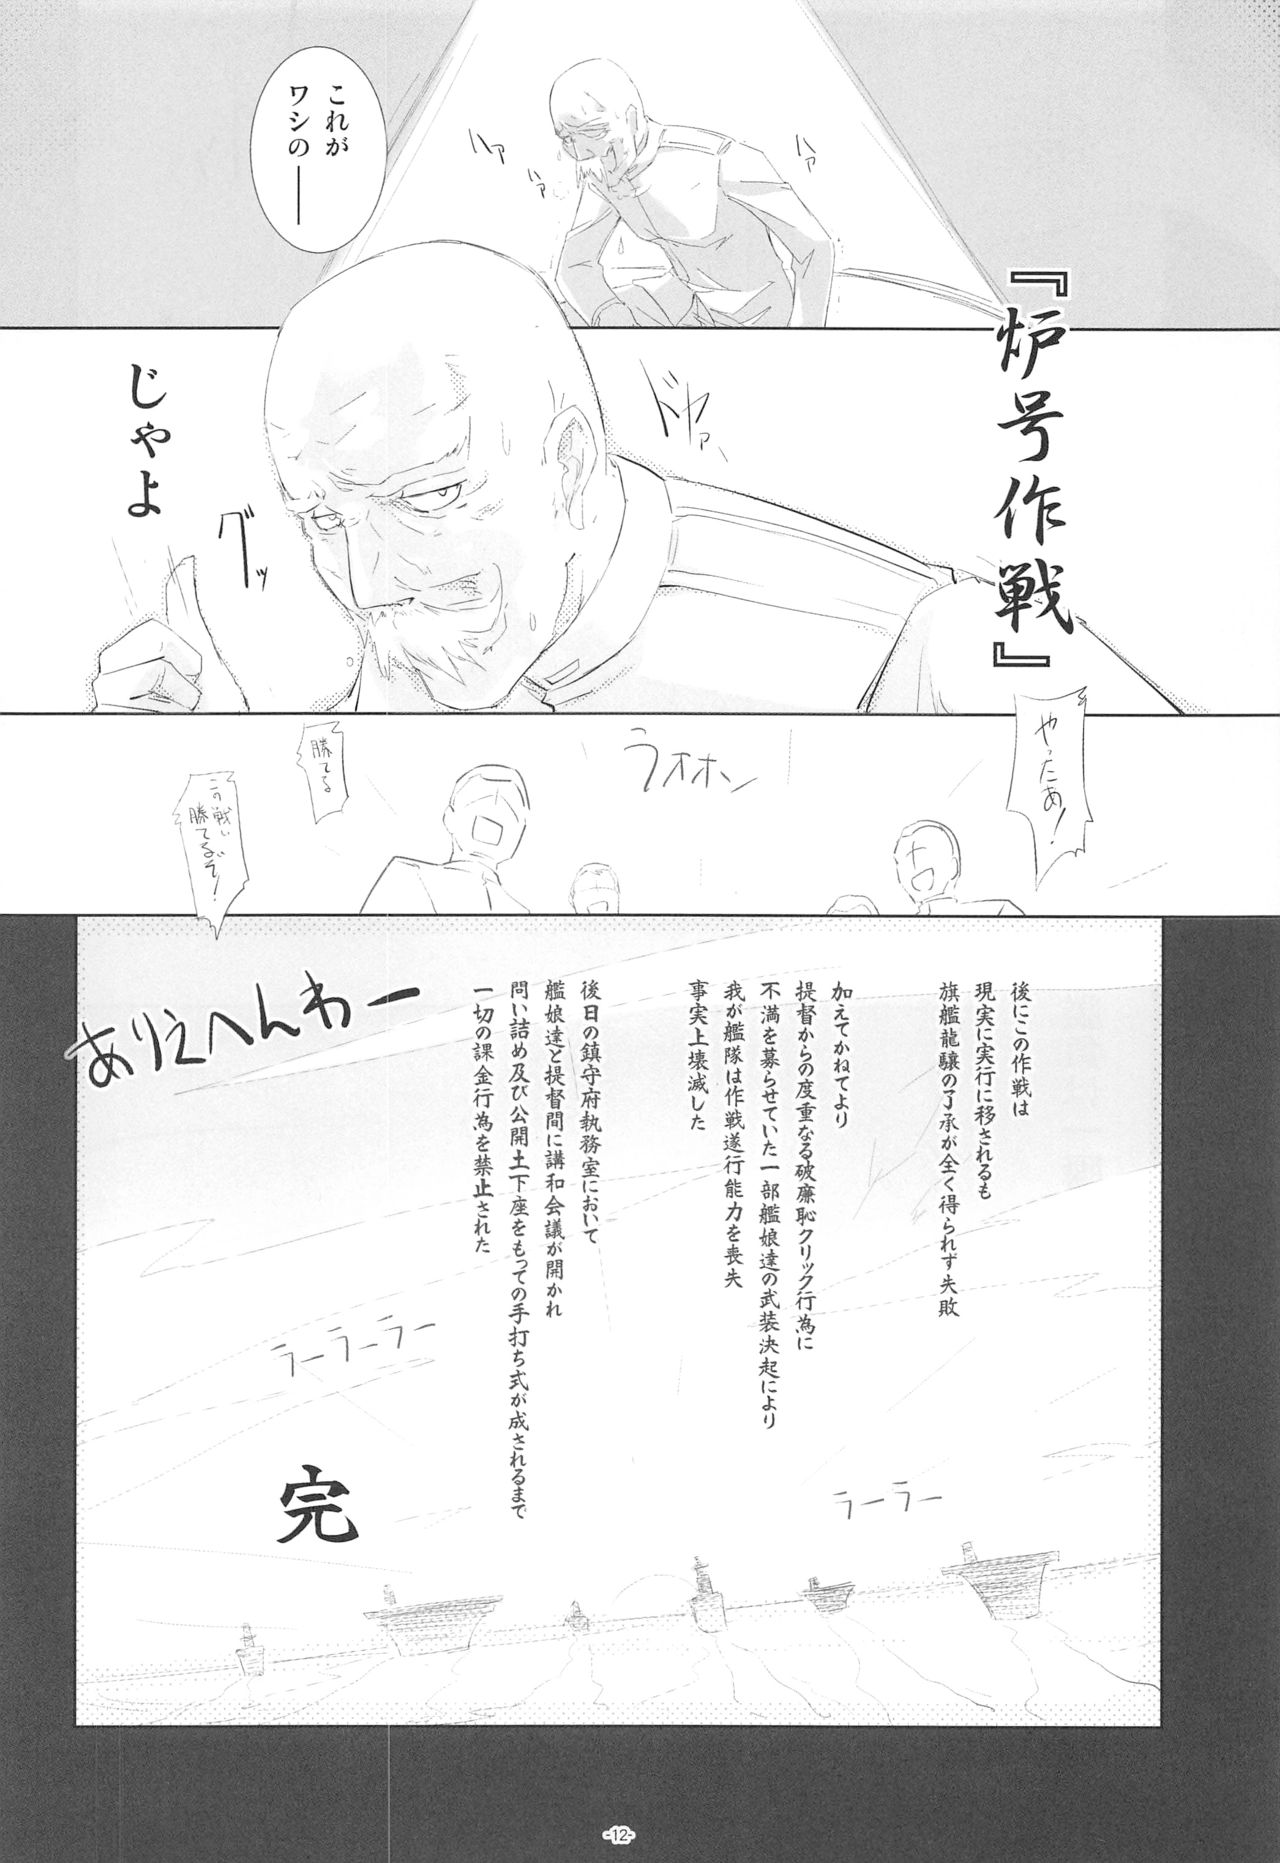 これが
ワシの──
ハァ
ハァ
ハァ
ハァ
『炉号作戦』
じゃよ
ドヤァ
グッ
やったあ！
ラオホン
勝てる
この戦い
勝てるぞ！
後にこの作戦は
現実に実行に移されるも
旗艦龍驤の了承が全く得られず失敗
加えてかねてより
提督からの度重なる破廉恥クリック行為に
不満を募らせていた一部艦娘達の武装決起により
我が艦隊は作戦遂行能力を喪失
事実上壊滅した
後日の鎮守府執務室において
艦娘達と提督間に講和会議が開かれ
問い詰め及び公開土下座をもっての手打ち式が成されるまで
一切の課金行為を禁止された
ありえへんわー
ラーラーラー
ラーラー
完
-12-